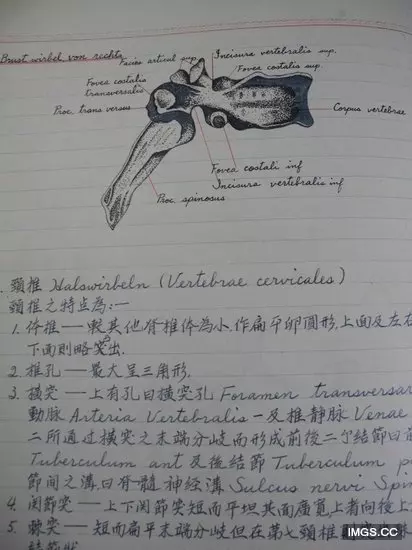 Brustwirbel von rechts
Facies articul sup.
Incisura vertebralis sup.
Fovea costalis sup.
Fovea costalis transversalis
Proc. transversus
Corpus vertebrae
Fovea costali inf
Incisura vertebralis inf
Proc. spinosus
頸椎 Halswirbeln (Vertebrae cervicales)
頸椎之特点為:—
1. 体椎 — 較其他脊椎体為小.作扁平卵圓形,上面及左右
下面則略突出.
2. 椎孔 — 最大呈三角形.
3. 橫突 — 上有孔曰橫突孔 Foramen transversar
動脉 Arteria Vertebralis 一及椎静脉 Venae
二所通过橫突之末端分歧而形成前後二个結節曰前
Tuberculum ant及後結節 Tuberculum p
節间之溝曰脊髓神經溝 Sulcus nervi Spin
4. 関節突 — 上下関節突短而平坦其面廣寬,上者向後上
5. 棘突 — 短而扁平末端分歧但在第七頸椎
結節狀
IMGS.CC